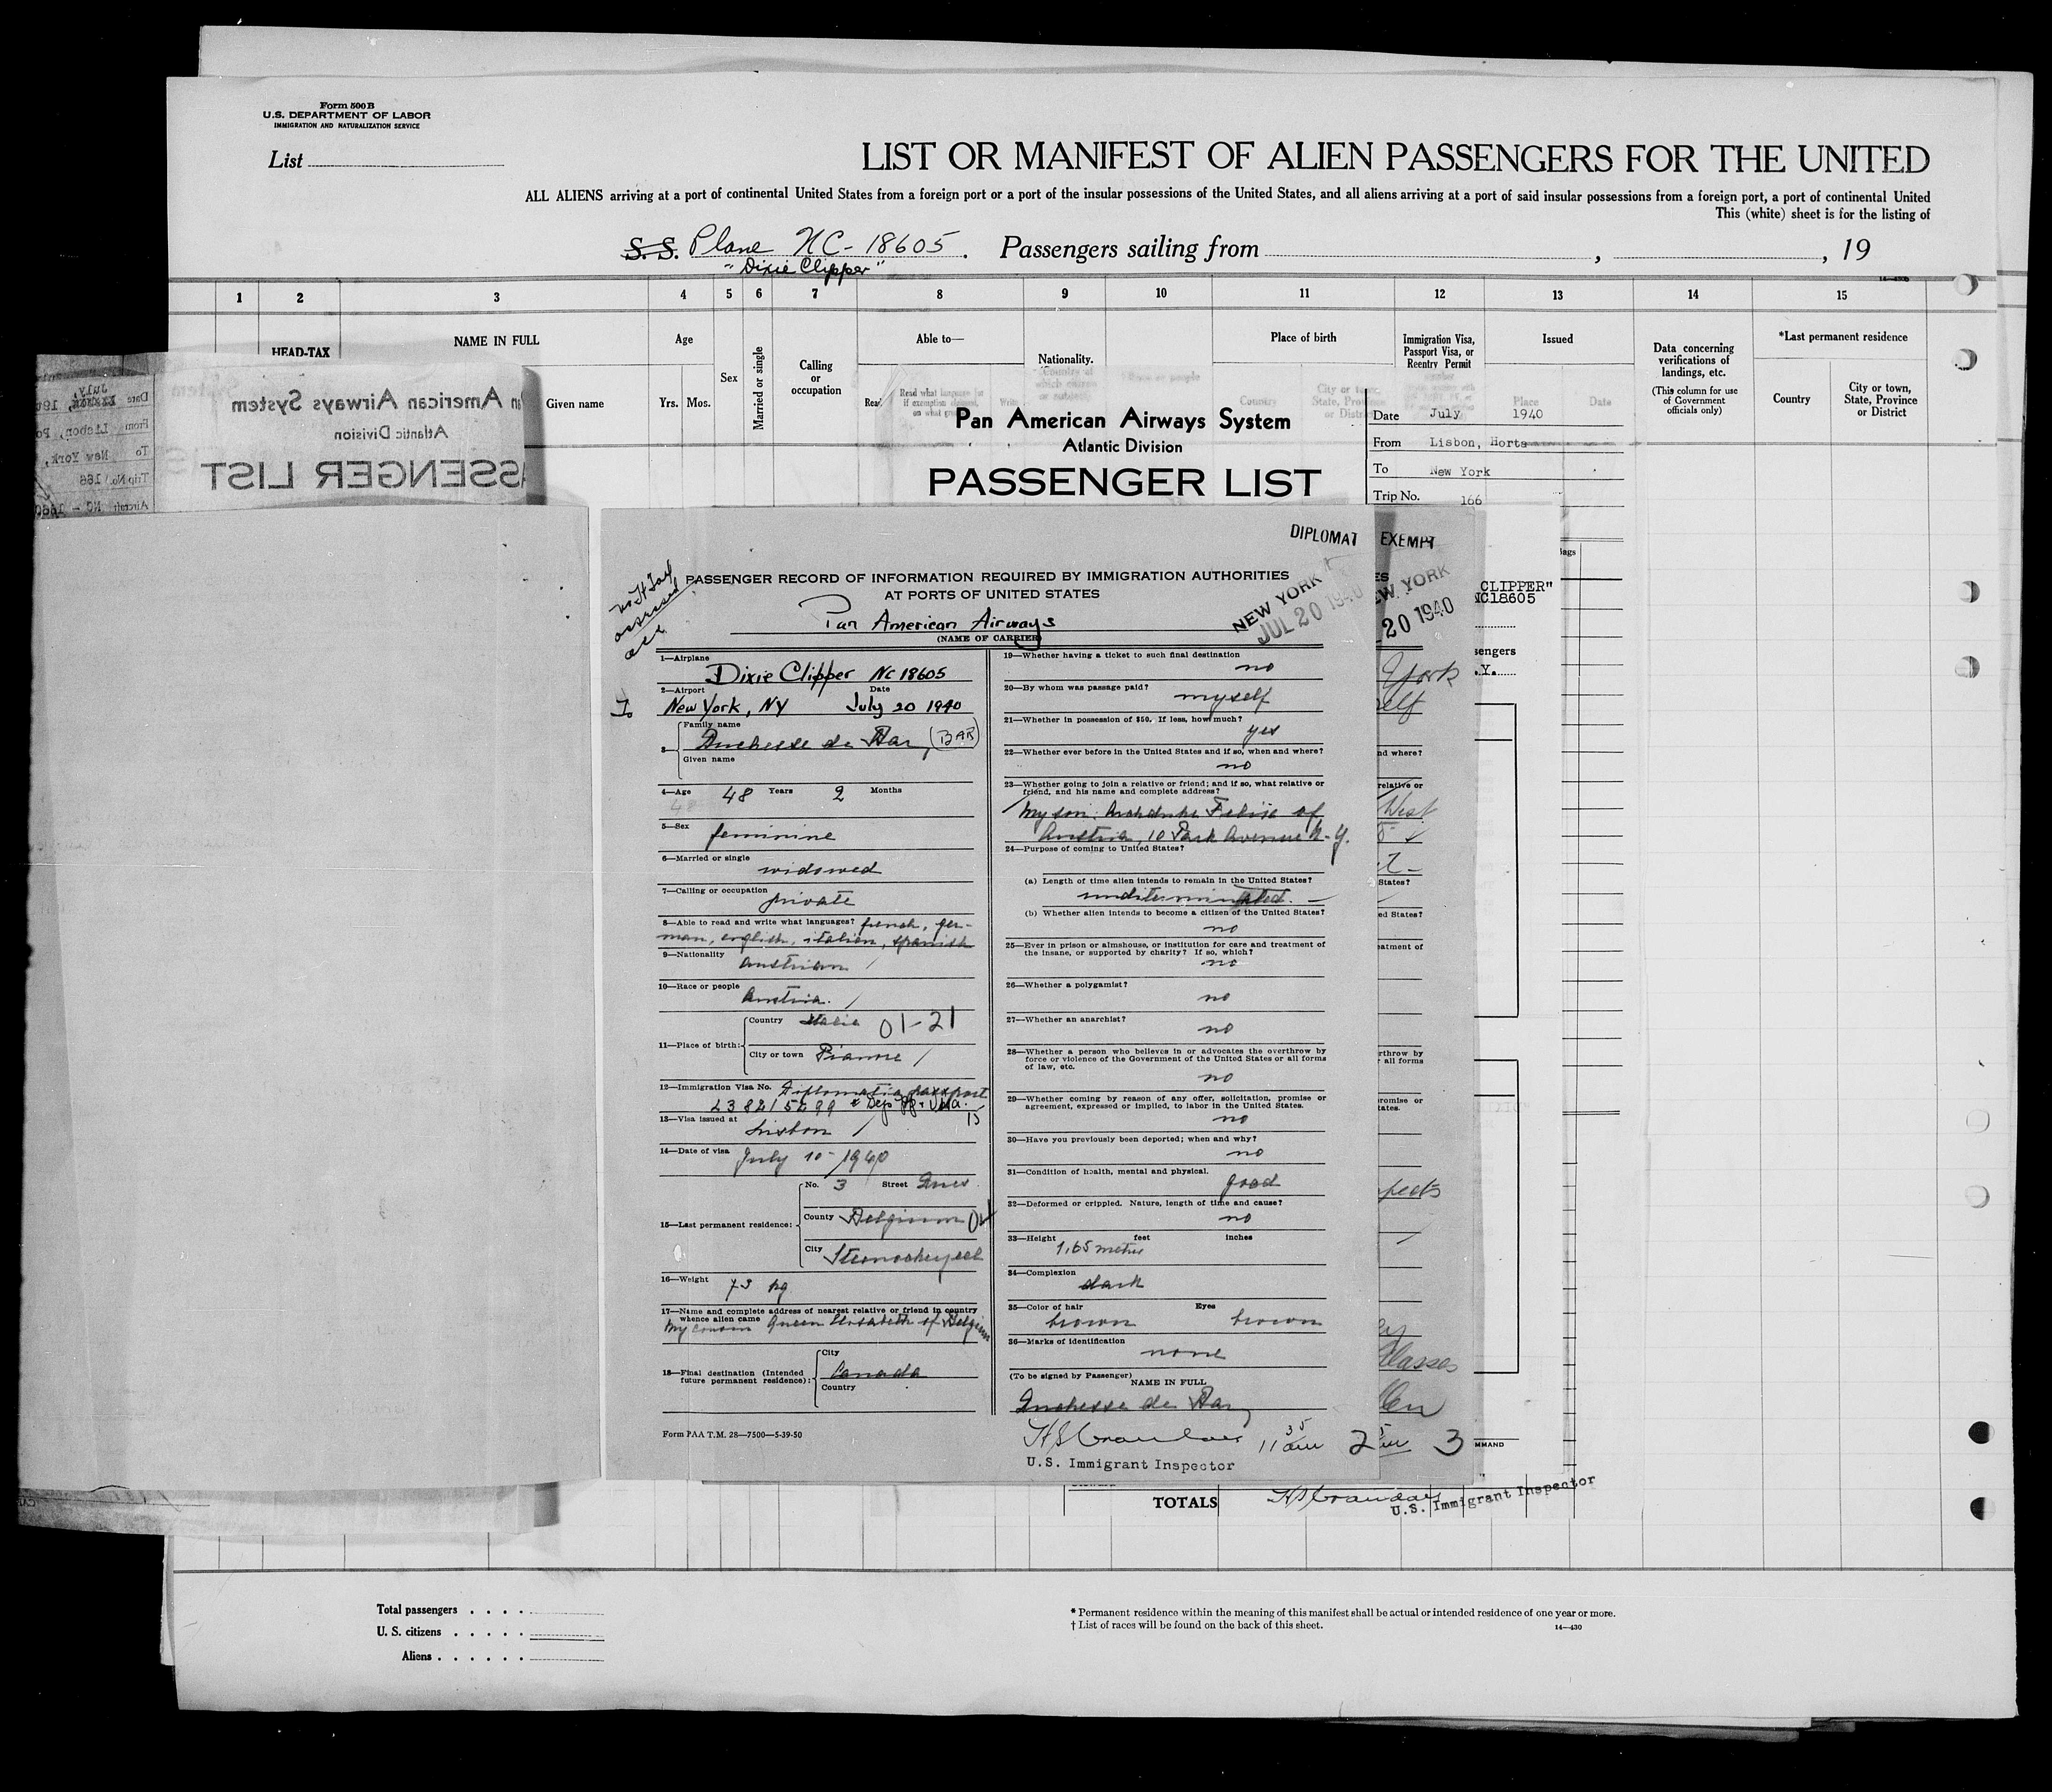 Form 500 B
U.S. DEPARTMENT OF LABOR
IMMIGRATION AND NATURALIZATION SERVICE
List
LIST OR MANIFEST OF ALIEN PASSENGERS FOR THE UNITED
ALL ALIENS arriving at a port of continental United States from a foreign port or a port of the insular possessions of the United States, and all aliens arriving at a port of said insular possessions from a foreign port, a port of continental United
This (white) sheet is for the listing of
S. S. Plane NC-18605. Passengers sailing from , , 19
"Dixie Clipper"
1 2 3 4 5 6 7 8 9 10 11 12 13 14 15
HEAD-TAX
NAME IN FULL
Given name
Age
Yrs. Mos.
Sex
Married or single
Calling or occupation
Able to—
Read what language [or if exemption claimed, on what ground] Write
Nationality.
Place of birth
Country City or town, State, Province or District
Immigration Visa, Passport Visa, or Reentry Permit
Issued
Place Date
Data concerning verifications of landings, etc.
(This column for use of Government officials only)
*Last permanent residence
Country
City or town, State, Province or District
American Airways System
Atlantic Division
SSENGER LIST
Pan American Airways System
Atlantic Division
PASSENGER LIST
Date July 1940
From Lisbon, Horta
To New York
Trip No. 166
DIPLOMAT EXEMPT
no H Tax
assessed
PASSENGER RECORD OF INFORMATION REQUIRED BY IMMIGRATION AUTHORITIES
AT PORTS OF UNITED STATES
Pan American Airways
(NAME OF CARRIER)
NEW YORK
JUL 20 1940
EW YORK
20 1940
CLIPPER"
NC18605
1—Airplane Dixie Clipper NC 18605
2—Airport Date
To New York, NY July 20 1940
3— Family name
Duchesse de Bar, (BAR)
Given name
4—Age 48 Years 2 Months
5—Sex feminine
6—Married or single widowed
7—Calling or occupation private
8—Able to read and write what languages? french, ger-
man, english, italien, spanish
9—Nationality austrian
10—Race or people Austria.
11—Place of birth: Country Italie 01-21
City or town Pianore
12—Immigration Visa No. Diplomatic passport
13—Visa issued at Lisbon
14—Date of visa July 10-1940
15—Last permanent residence: No. 3 Street
County Belgium
City
16—Weight 73 kg
17—Name and complete address of nearest relative or friend in country
whence alien came
My cousin Queen Elisabeth of Belgium
18—Final destination (Intended
future permanent residence): City
Canada
Country
Form PAA T.M. 28—7500—5-39-50
19—Whether having a ticket to such final destination
no
20—By whom was passage paid?
myself
21—Whether in possession of $50. If less, how much?
yes
22—Whether ever before in the United States and if so, when and where?
no
23—Whether going to join a relative or friend; and if so, what relative or
friend, and his name and complete address?
My son: Archduke Felix of
Austria, 10 Park Avenue N-Y.
24—Purpose of coming to United States?
(a) Length of time alien intends to remain in the United States?
(b) Whether alien intends to become a citizen of the United States?
no
25—Ever in prison or almshouse, or institution for care and treatment of
the insane, or supported by charity? If so, which?
no
26—Whether a polygamist?
no
27—Whether an anarchist?
no
28—Whether a person who believes in or advocates the overthrow by
force or violence of the Government of the United States or all forms
of law, etc.
no
29—Whether coming by reason of any offer, solicitation, promise or
agreement, expressed or implied, to labor in the United States.
no
30—Have you previously been deported; when and why?
no
31—Condition of health, mental and physical.
good
32—Deformed or crippled. Nature, length of time and cause?
no
33—Height feet inches
1,65 meter
34—Complexion
dark
35—Color of hair Eyes
brown brown
36—Marks of identification
none
(To be signed by Passenger)
NAME IN FULL
Duchesse de Bar
U.S. Immigrant Inspector
11 35 am 2 3
TOTALS
U.S. Immigrant Inspector
Total passengers
U. S. citizens
Aliens
* Permanent residence within the meaning of this manifest shall be actual or intended residence of one year or more.
† List of races will be found on the back of this sheet.
14—430